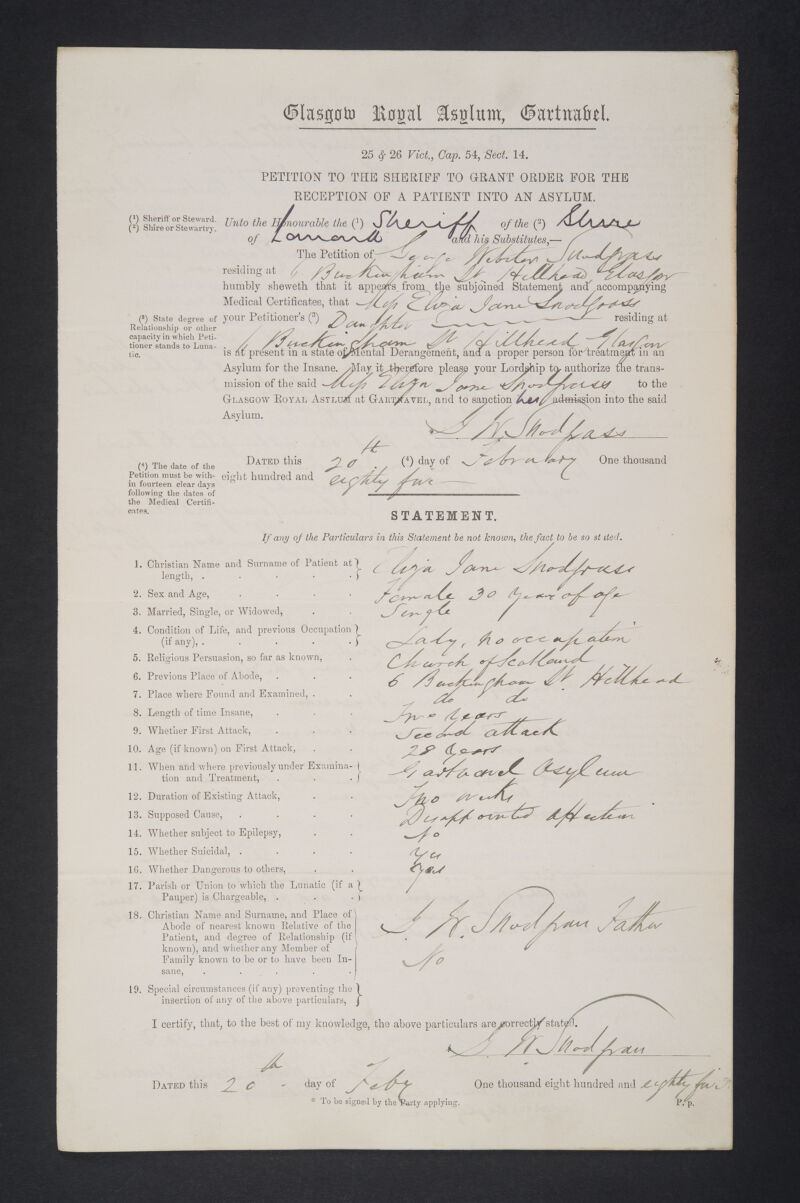 Glasgow Royal Asylum, Gartnavel.
25 & 26 Vict., Cap. 54, Sect. 14.
PETITION TO THE SHERIFF TO GRANT ORDER FOR THE
RECEPTION OF A PATIENT INTO AN ASYLUM.
(1) Sheriff or Steward.
(2) Shire or Stewartry.
Unto the Honourable the (1) Sheriff of the (2) Shire
of Lanark and his Substitutes,—
The Petition of George Webster Snodgrass
residing at 6 Buckingham St Hillhead Glasgow
humbly sheweth that it appears from the subjoined Statement and accompanying
Medical Certificates, that Miss Eliza Jane Snodgrass
(3) State degree of
Relationship or other
capacity in which Peti-
tioner stands to Luna-
tic.
your Petitioner's (3) Daughter residing at
6 Buckingham St Hillhead Glasgow
is at present in a state of Mental Derangement, and a proper person for treatment in an
Asylum for the Insane. May it therefore please your Lordship to authorize the trans-
mission of the said Miss Eliza Jane Snodgrass to the
GLASGOW ROYAL ASYLUM at GARTNAVEL, and to sanction her admission into the said
Asylum.
G. W. Snodgrass
(4) The date of the
Petition must be with-
in fourteen clear days
following the dates of
the Medical Certifi-
cates.
DATED this 20th (4) day of February One thousand
eight hundred and eighty five
STATEMENT.
If any of the Particulars in this Statement be not known, the fact to be so stated.
1. Christian Name and Surname of Patient at
length, . . . . . Eliza Jane Snodgrass
2. Sex and Age, . . . . Female 30 years of age
3. Married, Single, or Widowed, . . Single
4. Condition of Life, and previous Occupation
(if any), . . . . . Lady, no occupation
5. Religious Persuasion, so far as known, . Church of Scotland
6. Previous Place of Abode, . . . 6 Buckingham St. Hillhead
7. Place where Found and Examined, . . do do
8. Length of time Insane, . . . Two years
9. Whether First Attack, . . . Second attack
10. Age (if known) on First Attack, . . 28 years
11. When and where previously under Examina-
tion and Treatment, . . . Gartnavel Asylum
12. Duration of Existing Attack, . . Two weeks
13. Supposed Cause, . . . . Disappointed affection
14. Whether subject to Epilepsy, . . No
15. Whether Suicidal, . . . . Yes
16. Whether Dangerous to others, . . Yes
17. Parish or Union to which the Lunatic (if a
Pauper) is Chargeable, . . .
18. Christian Name and Surname, and Place of
Abode of nearest known Relative of the
Patient, and degree of Relationship (if
known), and whether any Member of
Family known to be or to have been In-
sane, . . . . .
G. W. Snodgrass Father
No
19. Special circumstances (if any) preventing the
insertion of any of the above particulars,
I certify, that, to the best of my knowledge, the above particulars are correctly stated.
G. W. Snodgrass
DATED this 20th day of Feby One thousand eight hundred and eighty five
* To be signed by the Party applying.
P. p.